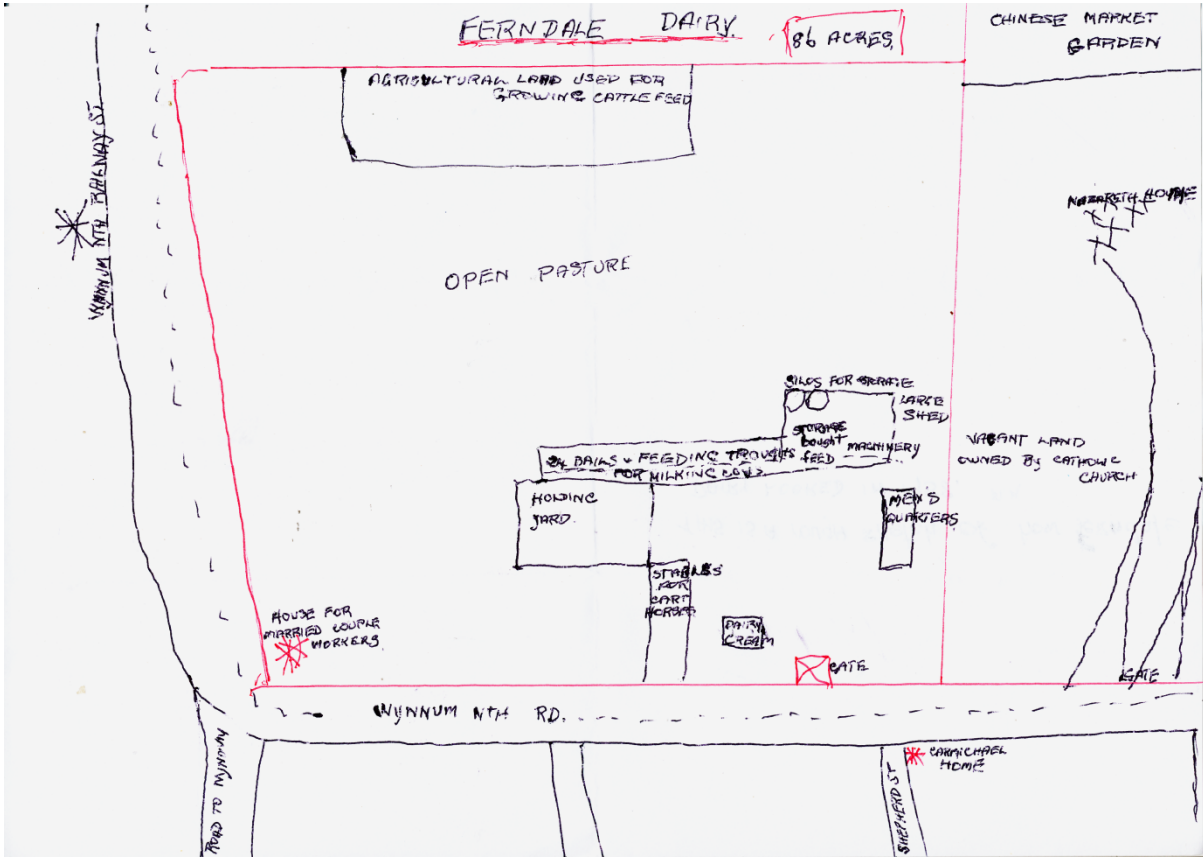 FERNDALE DAIRY. 86 ACRES.
CHINESE MARKET
GARDEN
AGRICULTURAL LAND USED FOR
GROWING CATTLE FEED
WYNNUM NTH RAILWAY ST.
NAZARETH HOUSE
OPEN PASTURE
SILOS FOR STORAGE
LARGE
SHED
STORAGE
bought
feed
MACHINERY
24 BAILS & FEEDING TROUGHS
FOR MILKING COWS
VACANT LAND
OWNED By CATHOLIC
CHURCH
HOLDING
YARD.
MEN'S
QUARTERS
STABLES
FOR
CART
HORSES
HOUSE FOR
MARRIED COUPLE
WORKERS
DAIRY
CREAM
GATE
GATE
WYNNUM NTH RD.
ROAD TO WYNNUM
SHEPHERD ST
CARMICHAEL
HOME